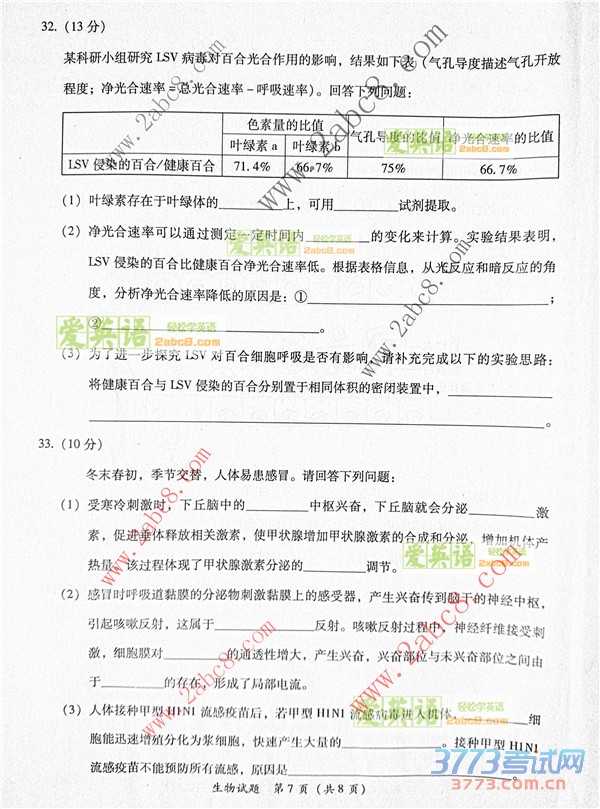 32.（13 分）
某科研小组研究 LSV 病毒对百合光合作用的影响，结果如下表（气孔导度描述气孔开放
程度；净光合速率=总光合速率－呼吸速率）。回答下列问题：
色素量的比值 气孔导度的比值 净光合速率的比值
叶绿素 a 叶绿素 b
LSV 侵染的百合/健康百合 71.4% 66.7% 75% 66.7%
（1）叶绿素存在于叶绿体的________上，可用________试剂提取。
（2）净光合速率可以通过测定一定时间内________的变化来计算。实验结果表明，
LSV 侵染的百合比健康百合净光合速率低。根据表格信息，从光反应和暗反应的角
度，分析净光合速率降低的原因是：①________；
②________。
（3）为了进一步探究 LSV 对百合细胞呼吸是否有影响，请补充完成以下的实验思路：
将健康百合与 LSV 侵染的百合分别置于相同体积的密闭装置中，________
________。
33.（10 分）
冬末春初，季节交替，人体易患感冒。请回答下列问题：
（1）受寒冷刺激时，下丘脑中的________中枢兴奋，下丘脑就会分泌________激
素，促进垂体释放相关激素，使甲状腺增加甲状腺激素的合成和分泌，增加机体产
热量。该过程体现了甲状腺激素分泌的________调节。
（2）感冒时呼吸道黏膜的分泌物刺激黏膜上的感受器，产生兴奋传到脑干的神经中枢，
引起咳嗽反射，这属于________反射。咳嗽反射过程中，神经纤维接受刺
激，细胞膜对________的通透性增大，产生兴奋，兴奋部位与未兴奋部位之间由
于________的存在，形成了局部电流。
（3）人体接种甲型 H1N1 流感疫苗后，若甲型 H1N1 流感病毒进入机体，________细
胞能迅速增殖分化为浆细胞，快速产生大量的________。接种甲型 H1N1
流感疫苗不能预防所有流感，原因是________。
生物试题 第 7 页（共 8 页）
www.2abc8.com
www.2abc8.com
www.2abc8.com
www.2abc8.com
爱英语 轻松学英语 2abc8.com
爱英语 轻松学英语 2abc8.com
爱英语 轻松学英语 2abc8.com
爱英语 轻松学英语 2abc8.com
爱英语 轻松学英语 2abc8.com
3773考试网
www.3773.com